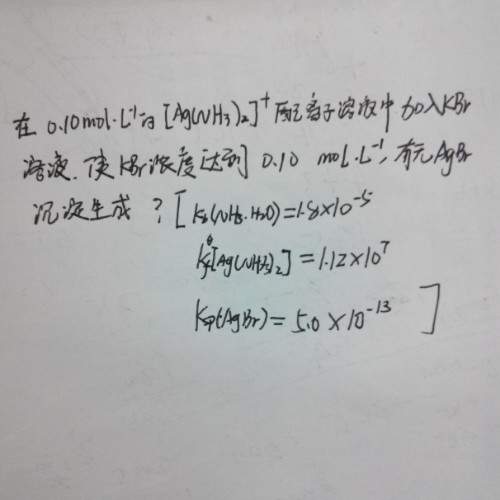 在 0.10mol·L⁻¹的[Ag(NH3)2]⁺配离子溶液中加入KBr
溶液.使KBr浓度达到 0.10 mol·L⁻¹,有无AgBr
沉淀生成?[Kb(NH3·H2O)=1.8×10⁻⁵
Kf^θ[Ag(NH3)2]=1.12×10⁷
Ksp(AgBr)=5.0×10⁻¹³ ]